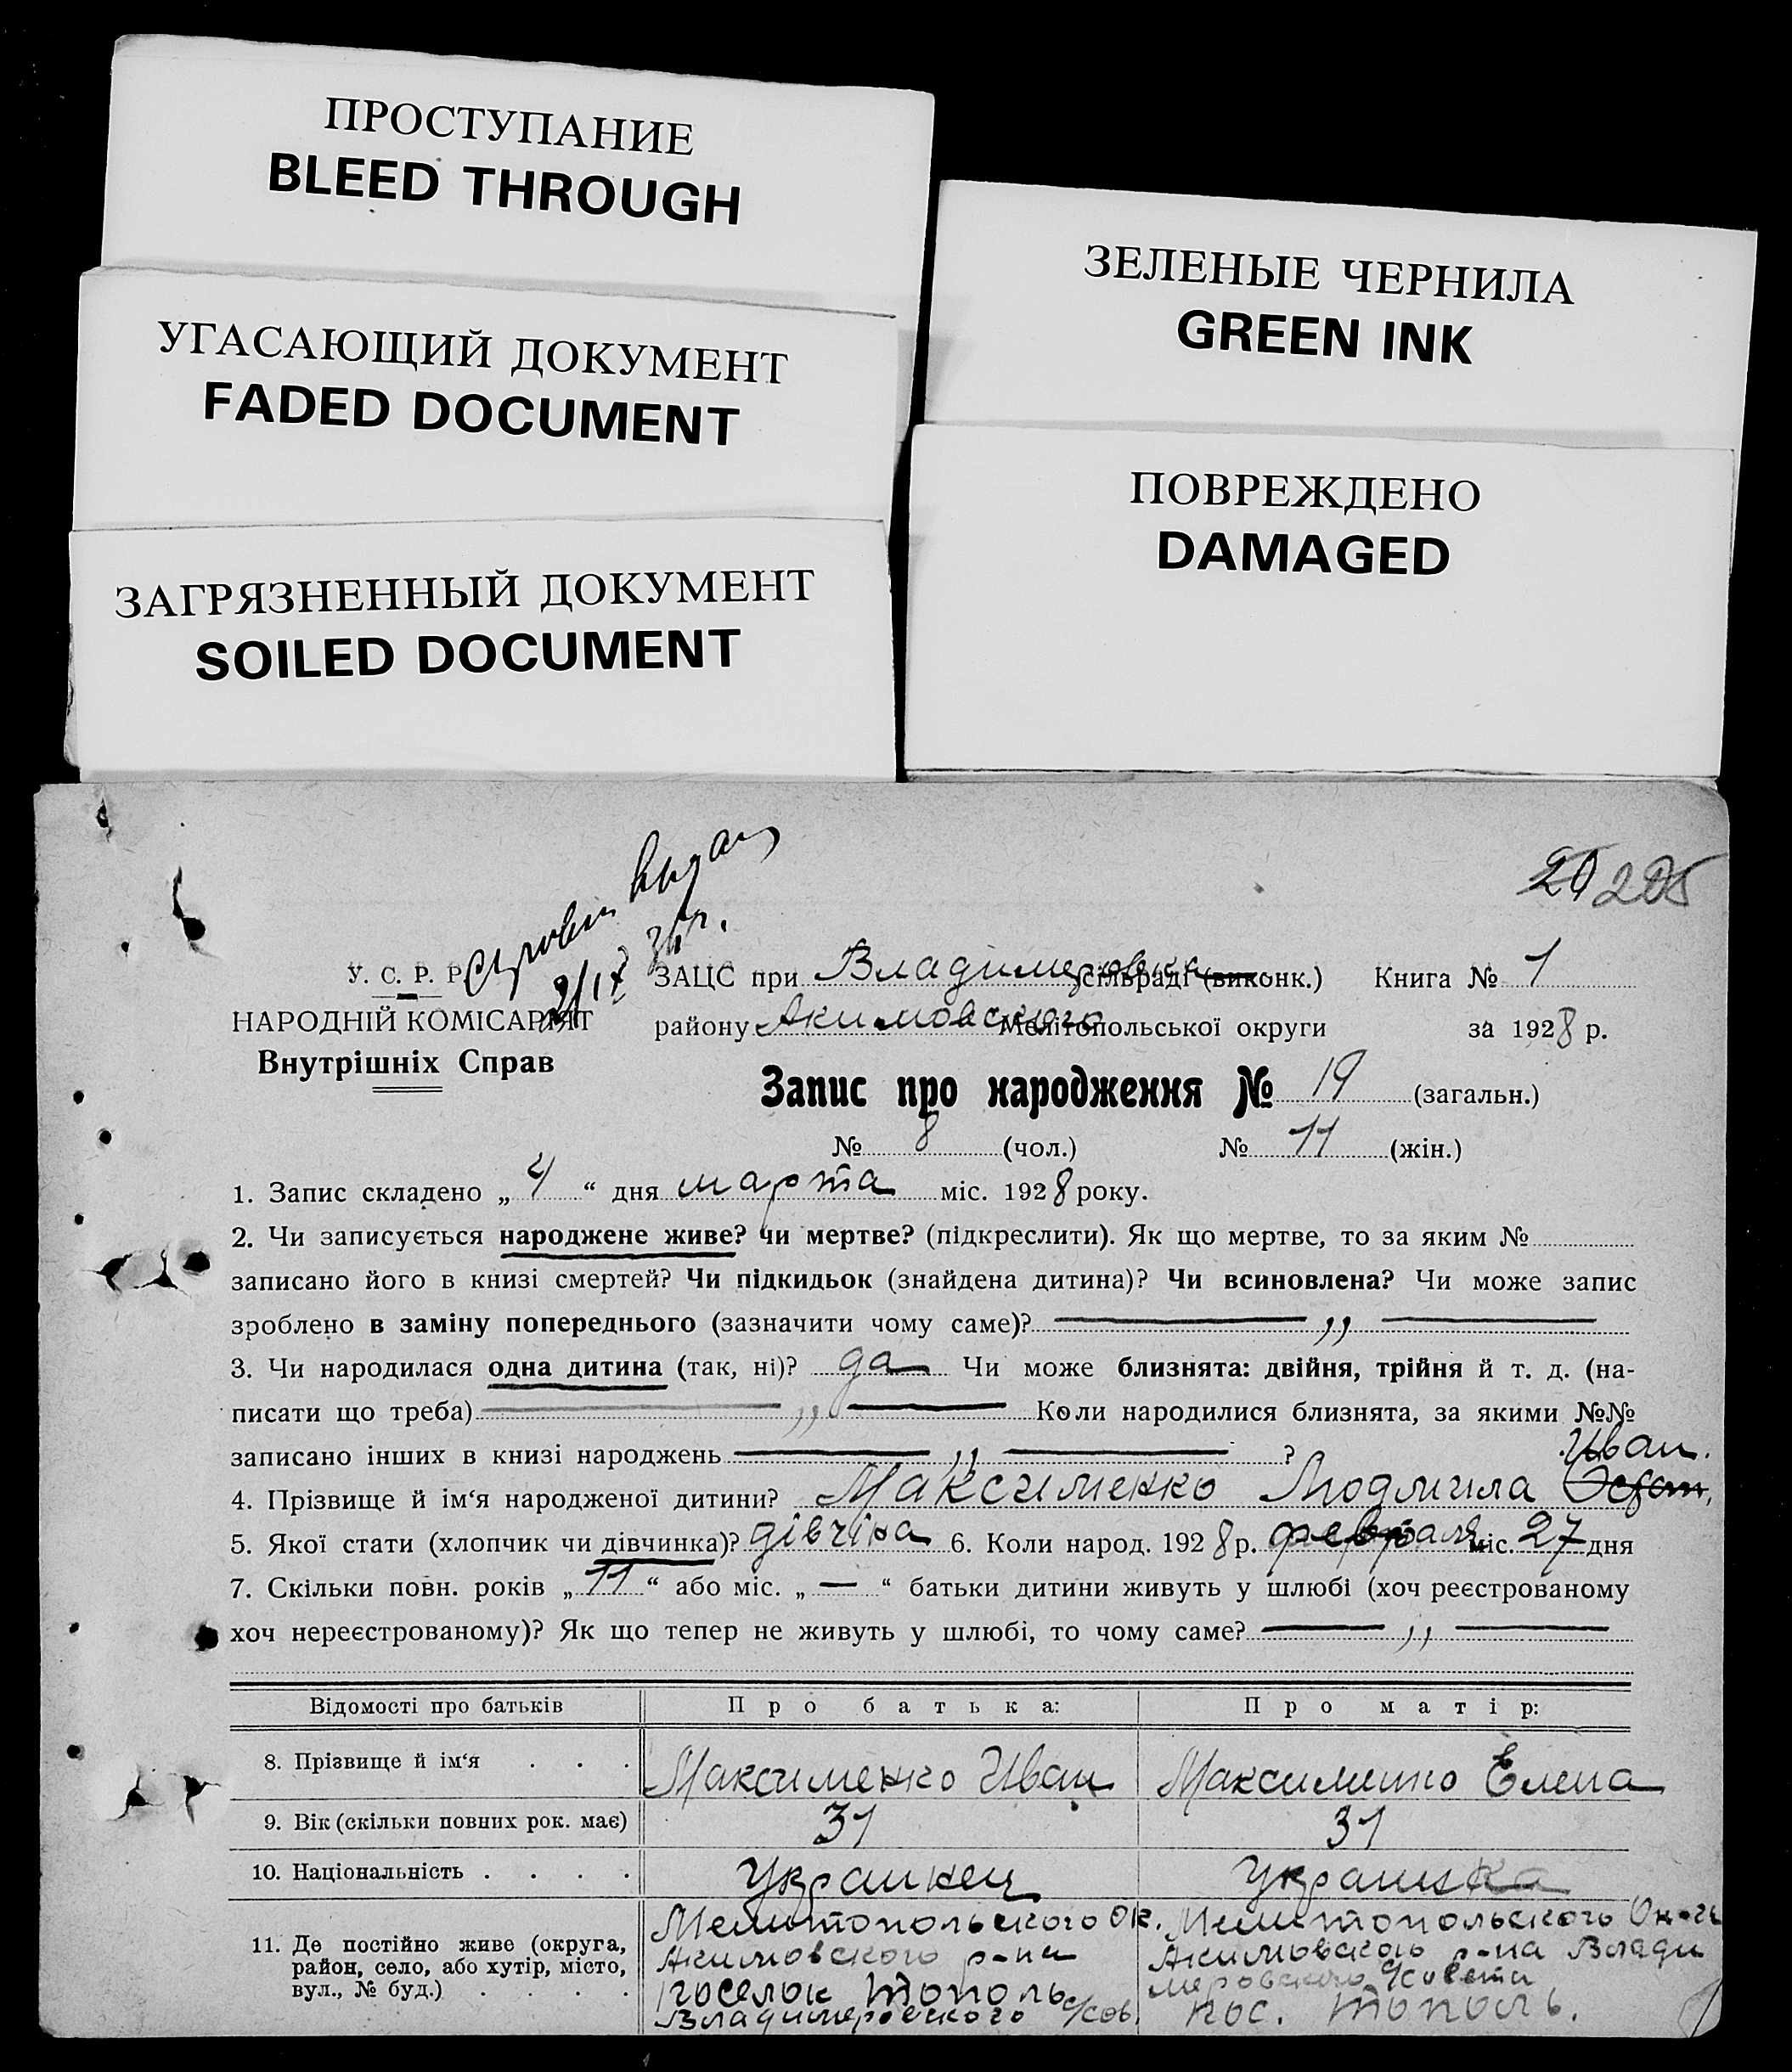 ПРОСТУПАНИЕ
BLEED THROUGH
ЗЕЛЕНЫЕ ЧЕРНИЛА
GREEN INK
УГАСАЮЩИЙ ДОКУМЕНТ
FADED DOCUMENT
ПОВРЕЖДЕНО
DAMAGED
ЗАГРЯЗНЕННЫЙ ДОКУМЕНТ
SOILED DOCUMENT
20 205
У. С. Р. Р.
НАРОДНІЙ КОМІСАРІЯТ
Внутрішніх Справ
ЗАЦС при Владимировка сільраді (виконк.) Книга № 1
району Акимовского Мелітопольської округи за 1928 р.
Запис про народження № 19 (загальн.)
№ 8 (чол.) № 11 (жін.)
1. Запис складено „ 4 “ дня марта міс. 1928 року.
2. Чи записується народжене живе? чи мертве? (підкреслити). Як що мертве, то за яким №
записано його в книзі смертей? Чи підкидьок (знайдена дитина)? Чи всиновлена? Чи може запис
зроблено в заміну попереднього (зазначити чому саме)? — „ —
3. Чи народилася одна дитина (так, ні)? да Чи може близнята: двійня, трійня й т. д. (на-
писати що треба) — „ — Коли народилися близнята, за якими №№
записано інших в книзі народжень — „ — ?
Иван.
4. Прізвище й ім‘я народженої дитини? Максименко Людмила
5. Якої стати (хлопчик чи дівчинка)? дівчіна 6. Коли народ. 1928 р. февраля міс. 27 дня
7. Скільки повн. років „ 11 “ або міс. „ — “ батьки дитини живуть у шлюбі (хоч реєстрованому
хоч нереєстрованому)? Як що тепер не живуть у шлюбі, то чому саме? — „ —
Відомості про батьків Про батька: Про матір:
8. Прізвище й ім‘я . . . Максименко Иван Максименко Елена
9. Вік (скільки повних рок. має) 31 31
10. Національність . . . . Украинец Украинка
11. Де постійно живе (округа,
район, село, або хутір, місто,
вул., № буд.) . . . .
Мелитопольского ок.
Акимовского р-на
поселок Тополь
Владимеровского с/сов.
Мелитопольского Ок-га
Акимовского р-на Влади
меровского с/совета
пос. Тополь.